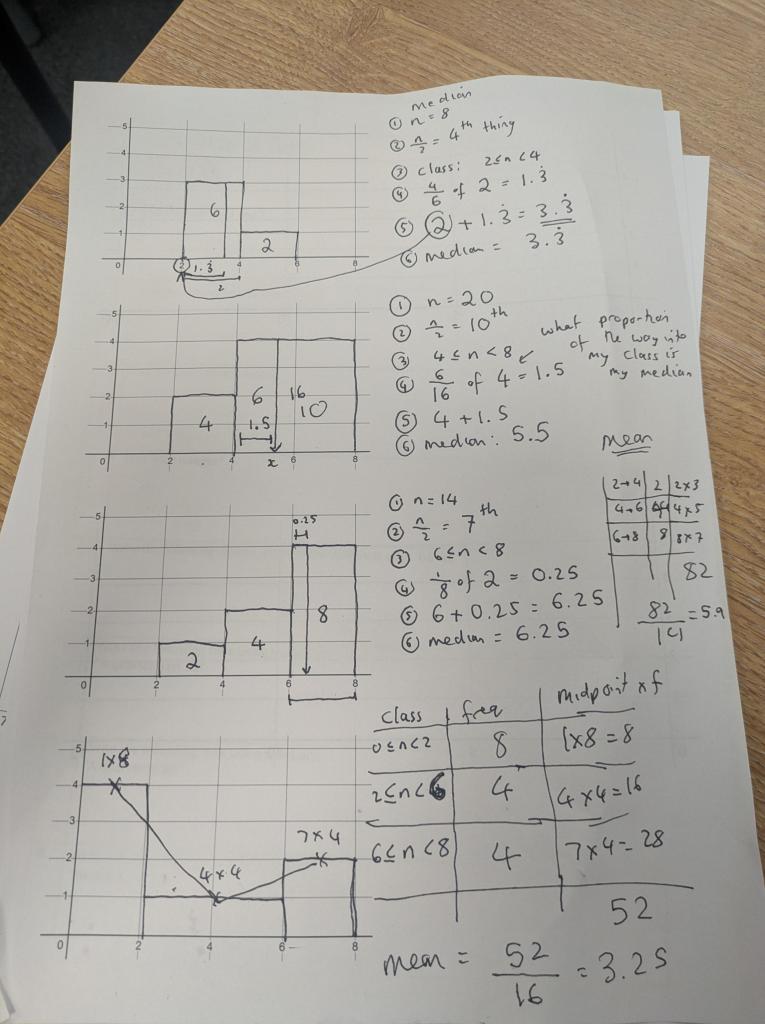 median
① n = 8
② n/2 = 4th thing
③ class: 2 ≤ n < 4
④ 4/6 of 2 = 1.3̇
⑤ 2 + 1.3̇ = 3.3̇
⑥ median = 3.3̇
5
4
3
2
1
0
6
2
2
4
6
8
1.3̇
2
① n = 20
② n/2 = 10th
③ 4 ≤ n < 8
④ 6/16 of 4 = 1.5
⑤ 4 + 1.5
⑥ median: 5.5
what proportion
of the way into
my class is
my median
5
4
3
2
1
0
4
6
16
10
1.5
2
4
6
8
x
mean
2→4 2 2×3
4→6 4 4×5
6→8 8 8×7
82
82/14 = 5.9
① n = 14
② n/2 = 7th
③ 6 ≤ n < 8
④ 1/8 of 2 = 0.25
⑤ 6 + 0.25 = 6.25
⑥ median = 6.25
0.25
5
4
3
2
1
0
2
4
8
2
4
6
8
class freq midpoint × f
0 ≤ n < 2 8 1×8 = 8
2 ≤ n < 6 4 4×4 = 16
6 ≤ n < 8 4 7×4 = 28
52
mean = 52/16 = 3.25
5
4
3
2
1
0
1×8
4×4
7×4
2
4
6
8